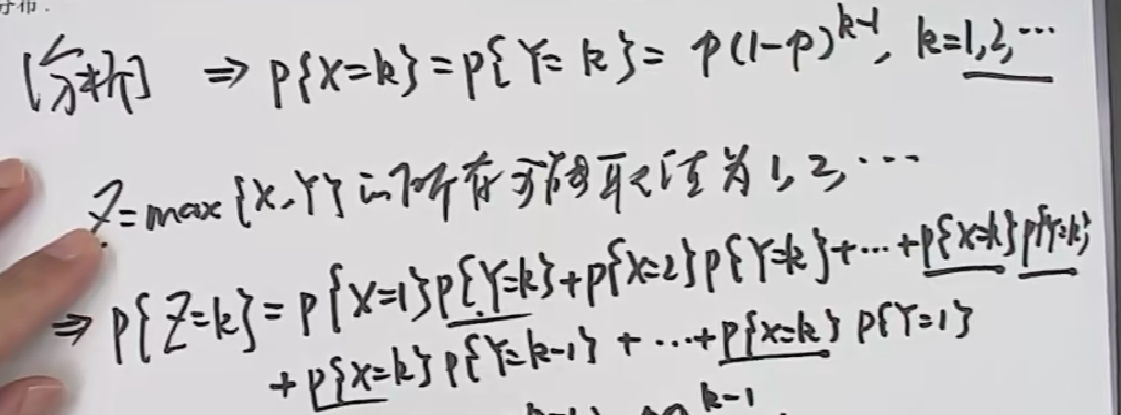 布.
[分析] ⇒ P{X=k}=P{Y=k}= p(1-p)^{k-1}, k=1,2,…
Z=max{X,Y}的所有可能取值为1,2,…
⇒ P{Z=k}=P{X=1}P{Y=k}+P{X=2}P{Y=k}+…+P{X=k}P{Y=k}
+P{X=k}P{Y=k-1}+…+P{X=k}P{Y=1}
k-1